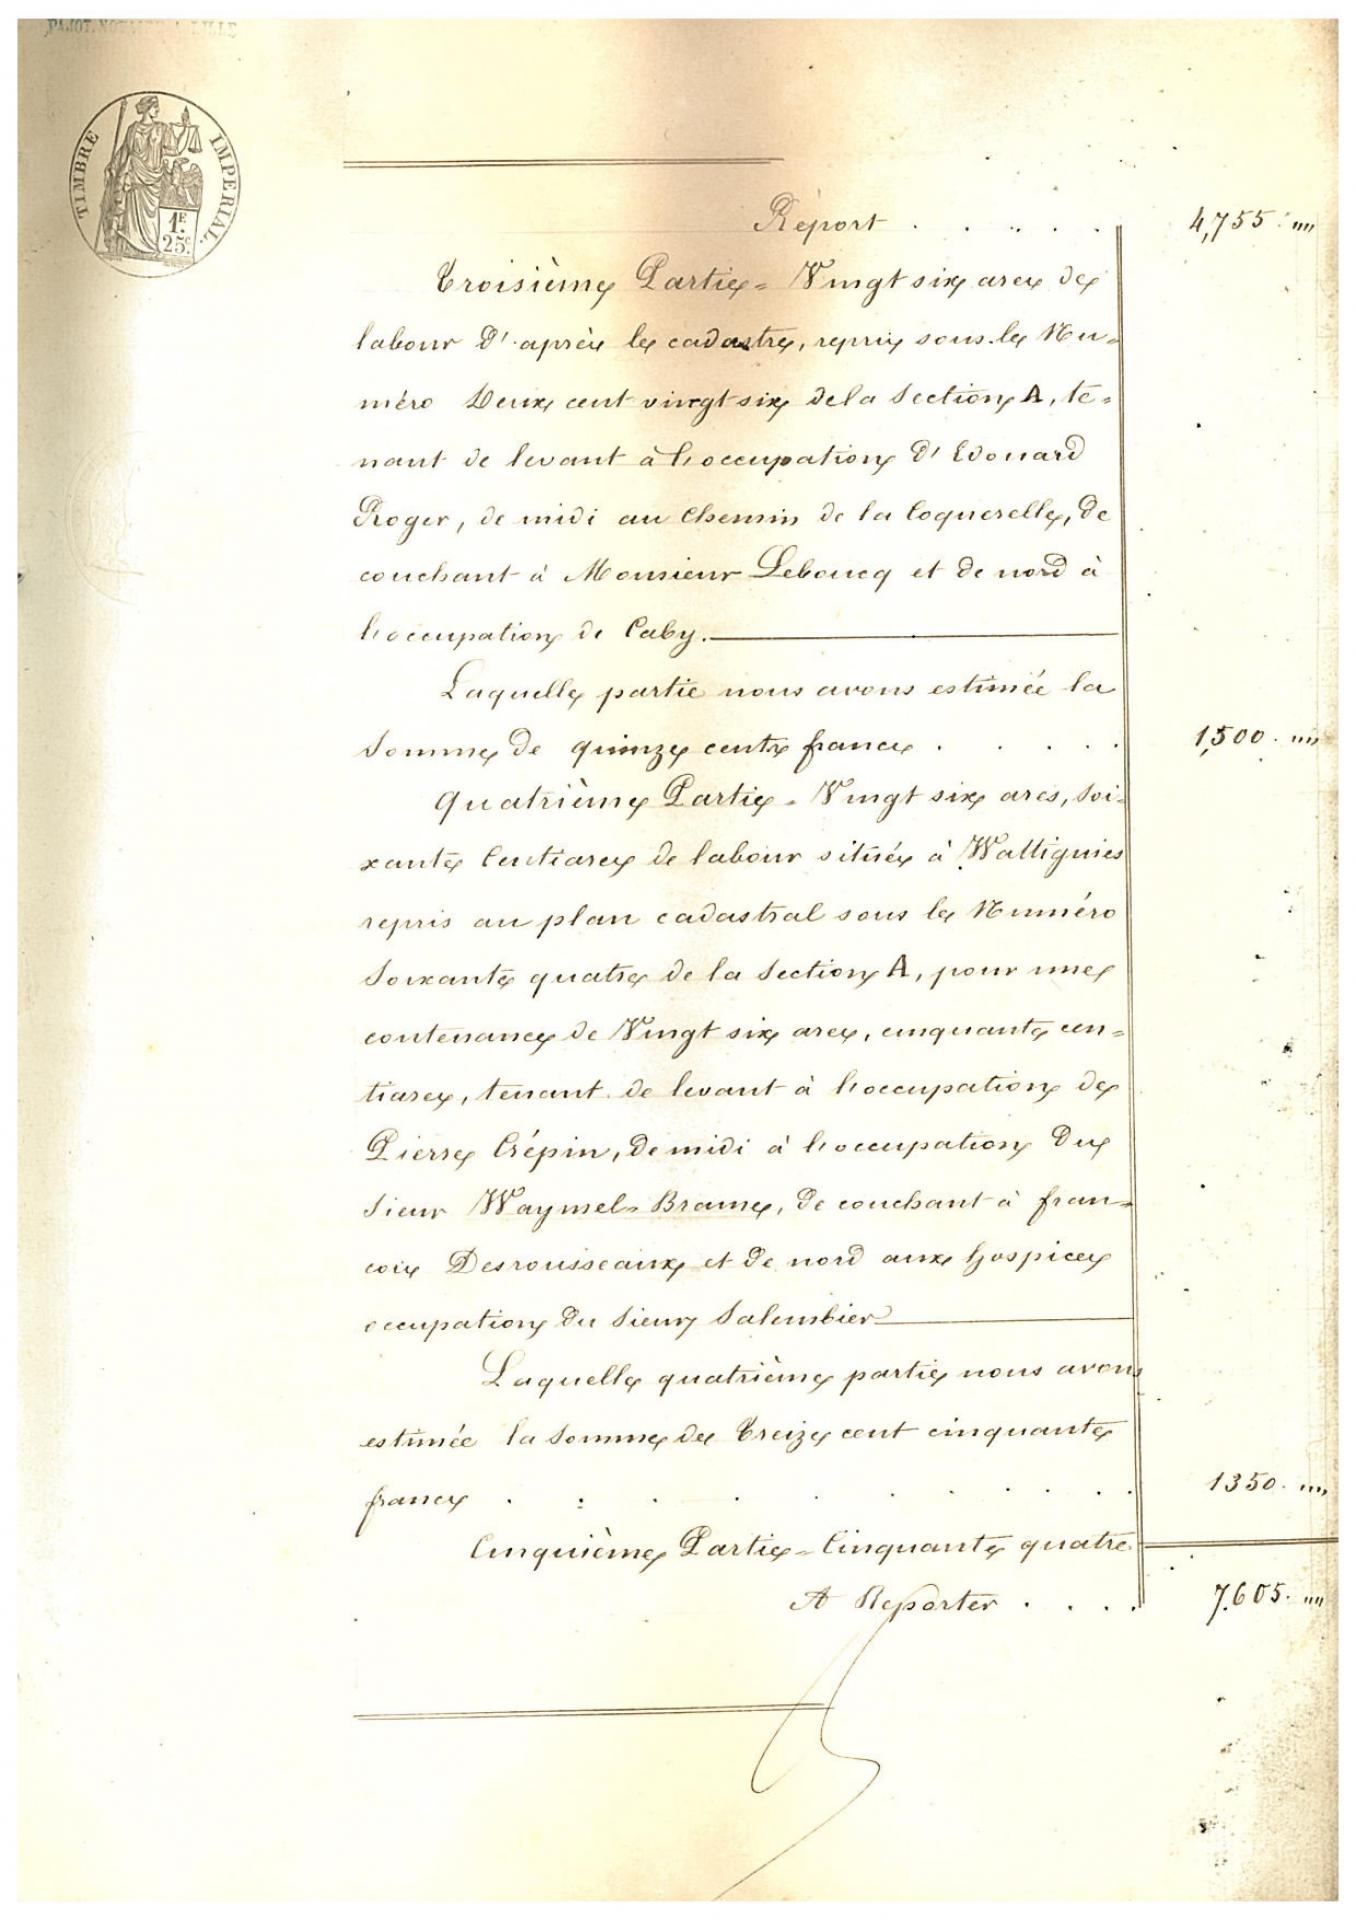 PAJOT, NOTAIRE A LILLE
TIMBRE IMPERIAL.
1F
25c.
Report . . . . . 4,755. "
Troisième Partie = Vingt six ares de
labour d'après le cadastre, repris sous le Nu=
méro Deux cent vingt six de la Section A, te=
nant de levant à l'occupation d'Edouard
Roger, de midi au Chemin de la Coquerelle, de
couchant à Monsieur Leboucq et de nord à
l'occupation de Caby.
Laquelle partie nous avons estimée la
Somme de quinze cents francs . . . . . 1,500. "
Quatrième Partie = Vingt six ares, soi=
xante Centiares de labour située à Wattignies
repris au plan cadastral sous le Numéro
Soixante quatre de la Section A, pour une
contenance de Vingt six ares, cinquante cen=
tiares, tenant de levant à l'occupation de
Pierre Crépin, de midi à l'occupation du
Sieur Waymel=Brame, de couchant à fran=
cois Desrousseaux et de nord aux hospices
occupation du Sieur Salembier
Laquelle quatrième partie nous avons
estimée la Somme de Treize cent cinquante
francs . . . . . . . . . 1350. "
Cinquième Partie = Cinquante quatre
A Reporter . . . . 7.605. "